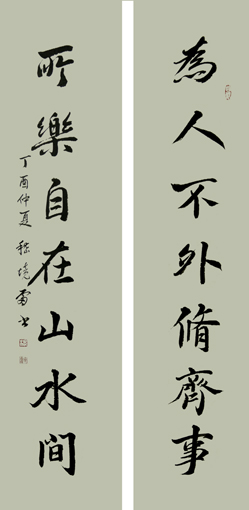 為人不外脩齊事
所樂自在山水間
丁酉仲夏
書